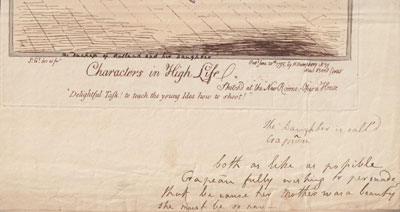 the Duchess of Rutland and her Daughter
Js. Gy. des et fect
Pubd. June 20th. 1795. by H. Humphrey No. 37
New Bond Street
Characters in High Life.
Sketch'd at the New Rooms. Opera House
"Delightful Task! to teach the young Idea how to shoot!"
The Daughter is call'd
Crapeau
both as like as possible
Crapeau fully wishing to persuade
that because her Mother was a beauty
she must be so now —